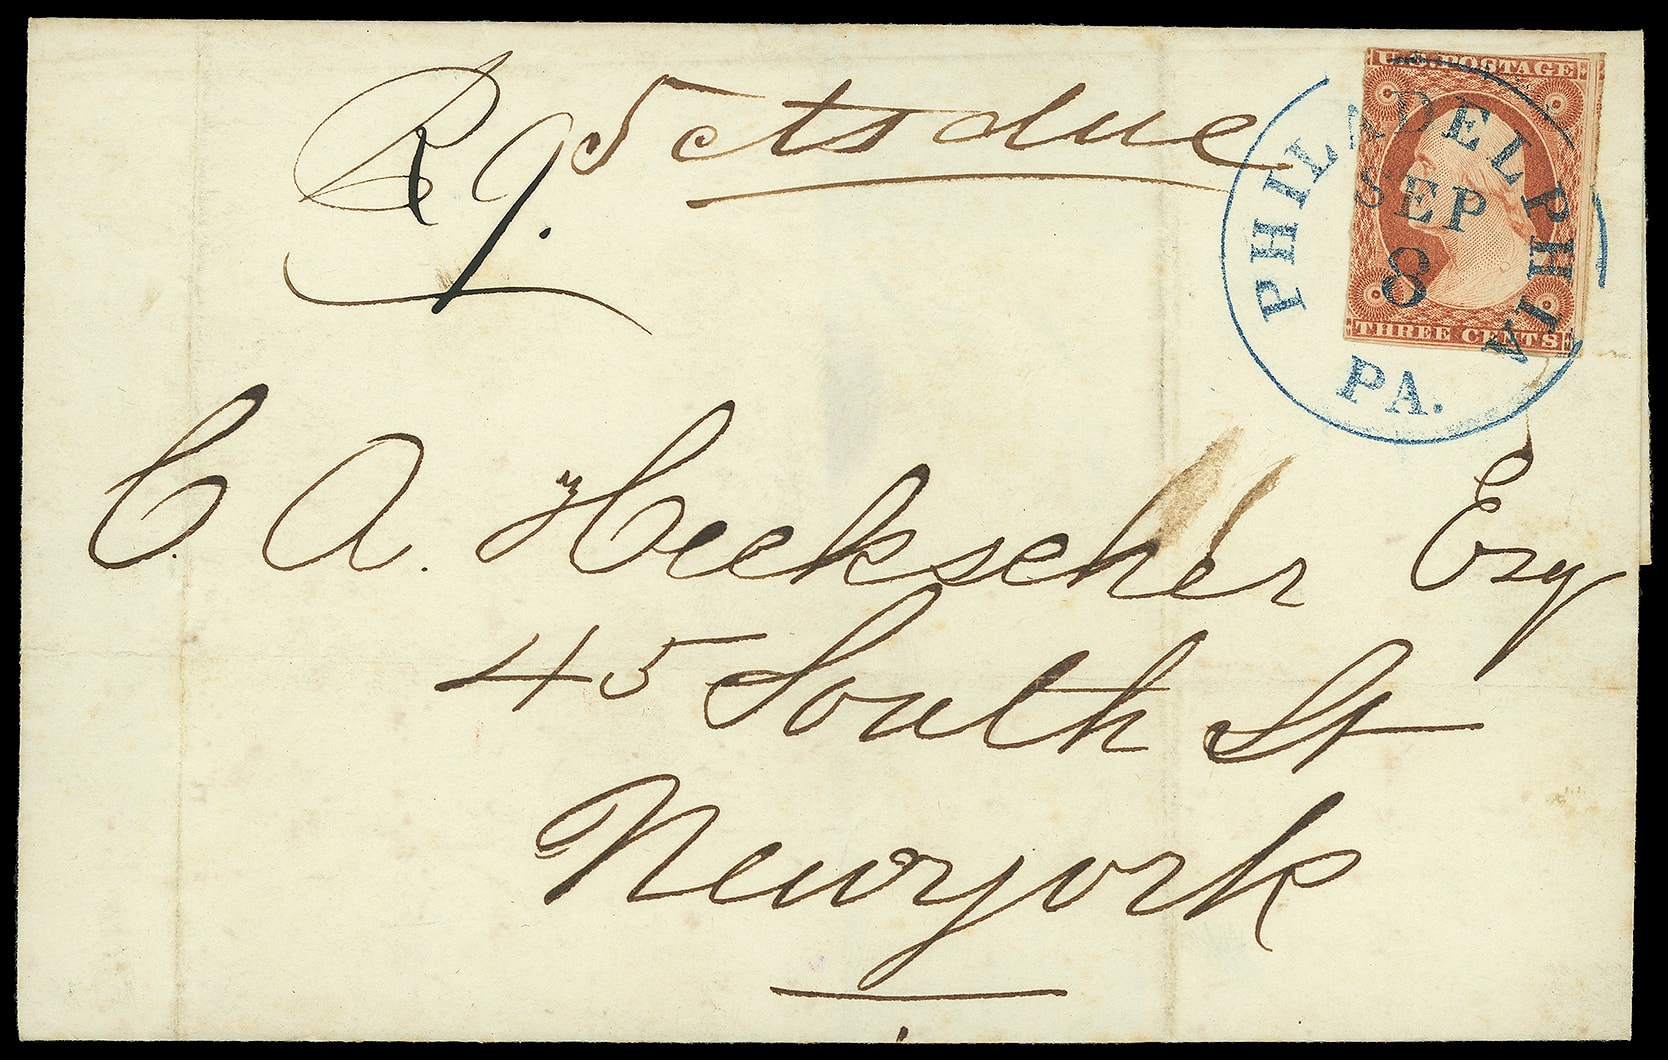 U.S. POSTAGE
R 9. 5 cts due
PHILADELPHIA
SEP
8
PA.
THREE CENTS
C. A. Heckscher Esq
45 South St
New york